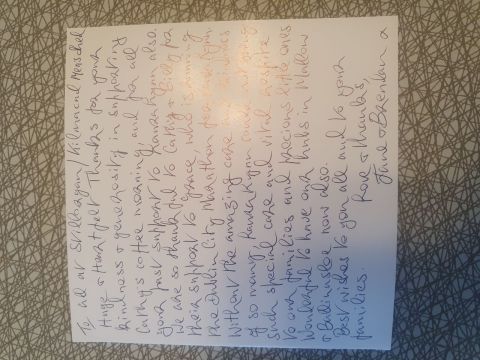 To all at Strathroy / Kilmacud Menschel
Huge & Heartfelt Thanks for your
kindness & generosity in supporting
Cathy's coffee morning, and for all
your past support to hannah ryan also
we are so thankful to Cathy & Billy for
their support to Grace who is running
the Dublin City Marathon for
Without the amazing care
of so many
such special care and vital respite
to our families and precious little ones
Wonderful to have our hubs in Mallow
& Ballinasloe now also.
Best wishes to you all and to your
families.
Love & thanks
June & Brendan a